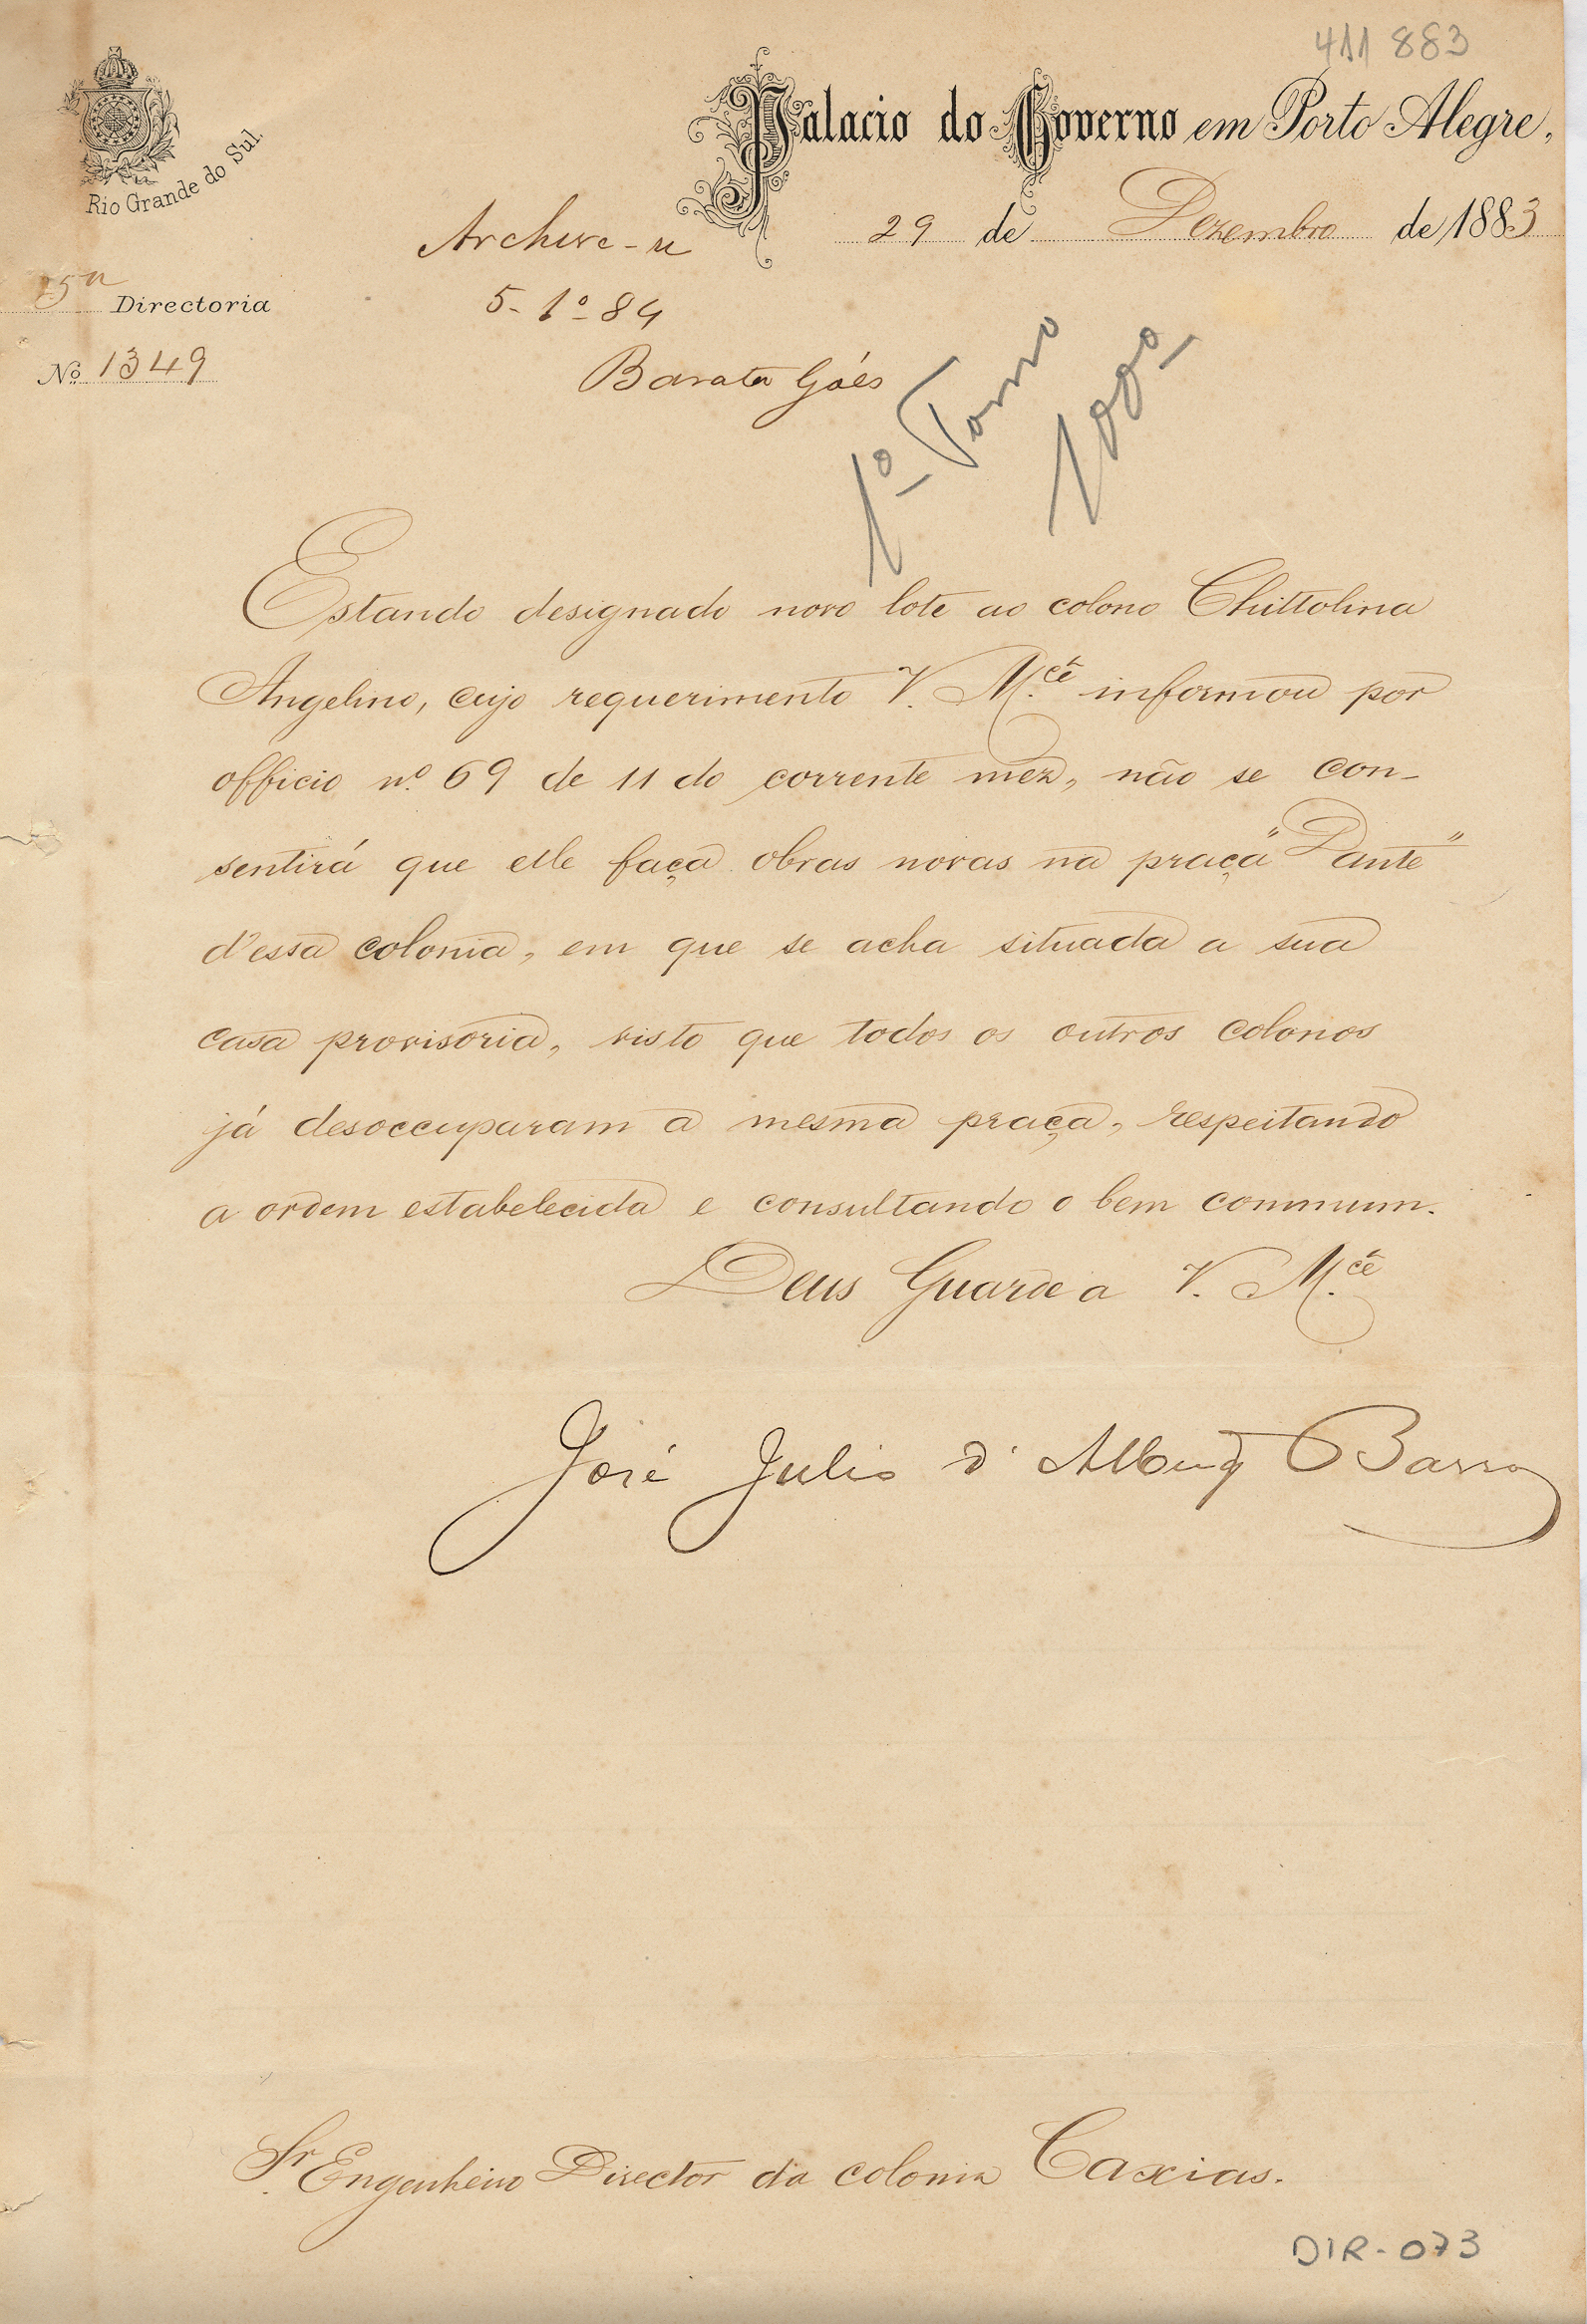 411 883
Palacio do Governo em Porto Alegre,
Rio Grande do Sul.
29 de Dezembro de 1883
Archive-se
5ª Directoria
5-1º-84
Nº 1349
Barata Góes
1º Tomo
Estando designado novo lote ao colono Chittolina
Angelino, cujo requerimento V. M.cê informou por
officio nº 69 de 11 do corrente mez, não se con-
sentirá que elle faça obras novas na praça "Dante"
d'essa colonia, em que se acha situada a sua
casa provisoria, visto que todos os outros colonos
já desoccuparam a mesma praça, respeitando
a ordem estabelecida e consultando o bem commum.
Deus Guarde a V. M.cê
José Julio d'Albuq Barros
Sr. Engenheiro Director da colonia Caxias.
DIR-073